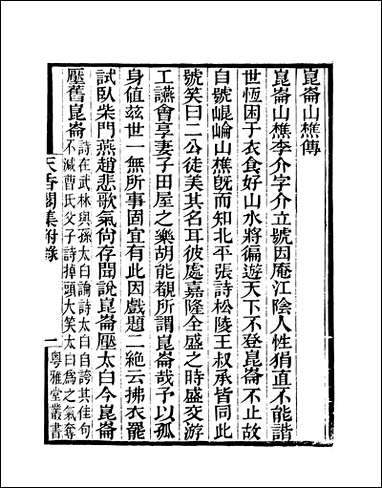 崑崙山樵傳
崑崙山樵李介字介立號因庵江陰人性狷直不能諧
世恆困于衣食好山水將徧遊天下不登崑崙不止故
自號崐崘山樵旣而知北平張詩松陵王叔承皆同此
號笑曰二公徒美其名耳彼處嘉隆全盛之時盛交游
工讌會享妻子田屋之樂胡能覩所謂崑崙哉予以孤
身值兹世一無所事固宜有此因戲題二絶云拂衣罷
試臥柴門燕趙悲歌氣尙存聞說崑崙壓太白今崑崙
壓舊崑崙
詩在武林與孫太白論詩太白自誇其佳句
不減曹氏父子詩掉頭大笑太白爲之氣奪
天香閣集附錄
一
粵雅堂叢書